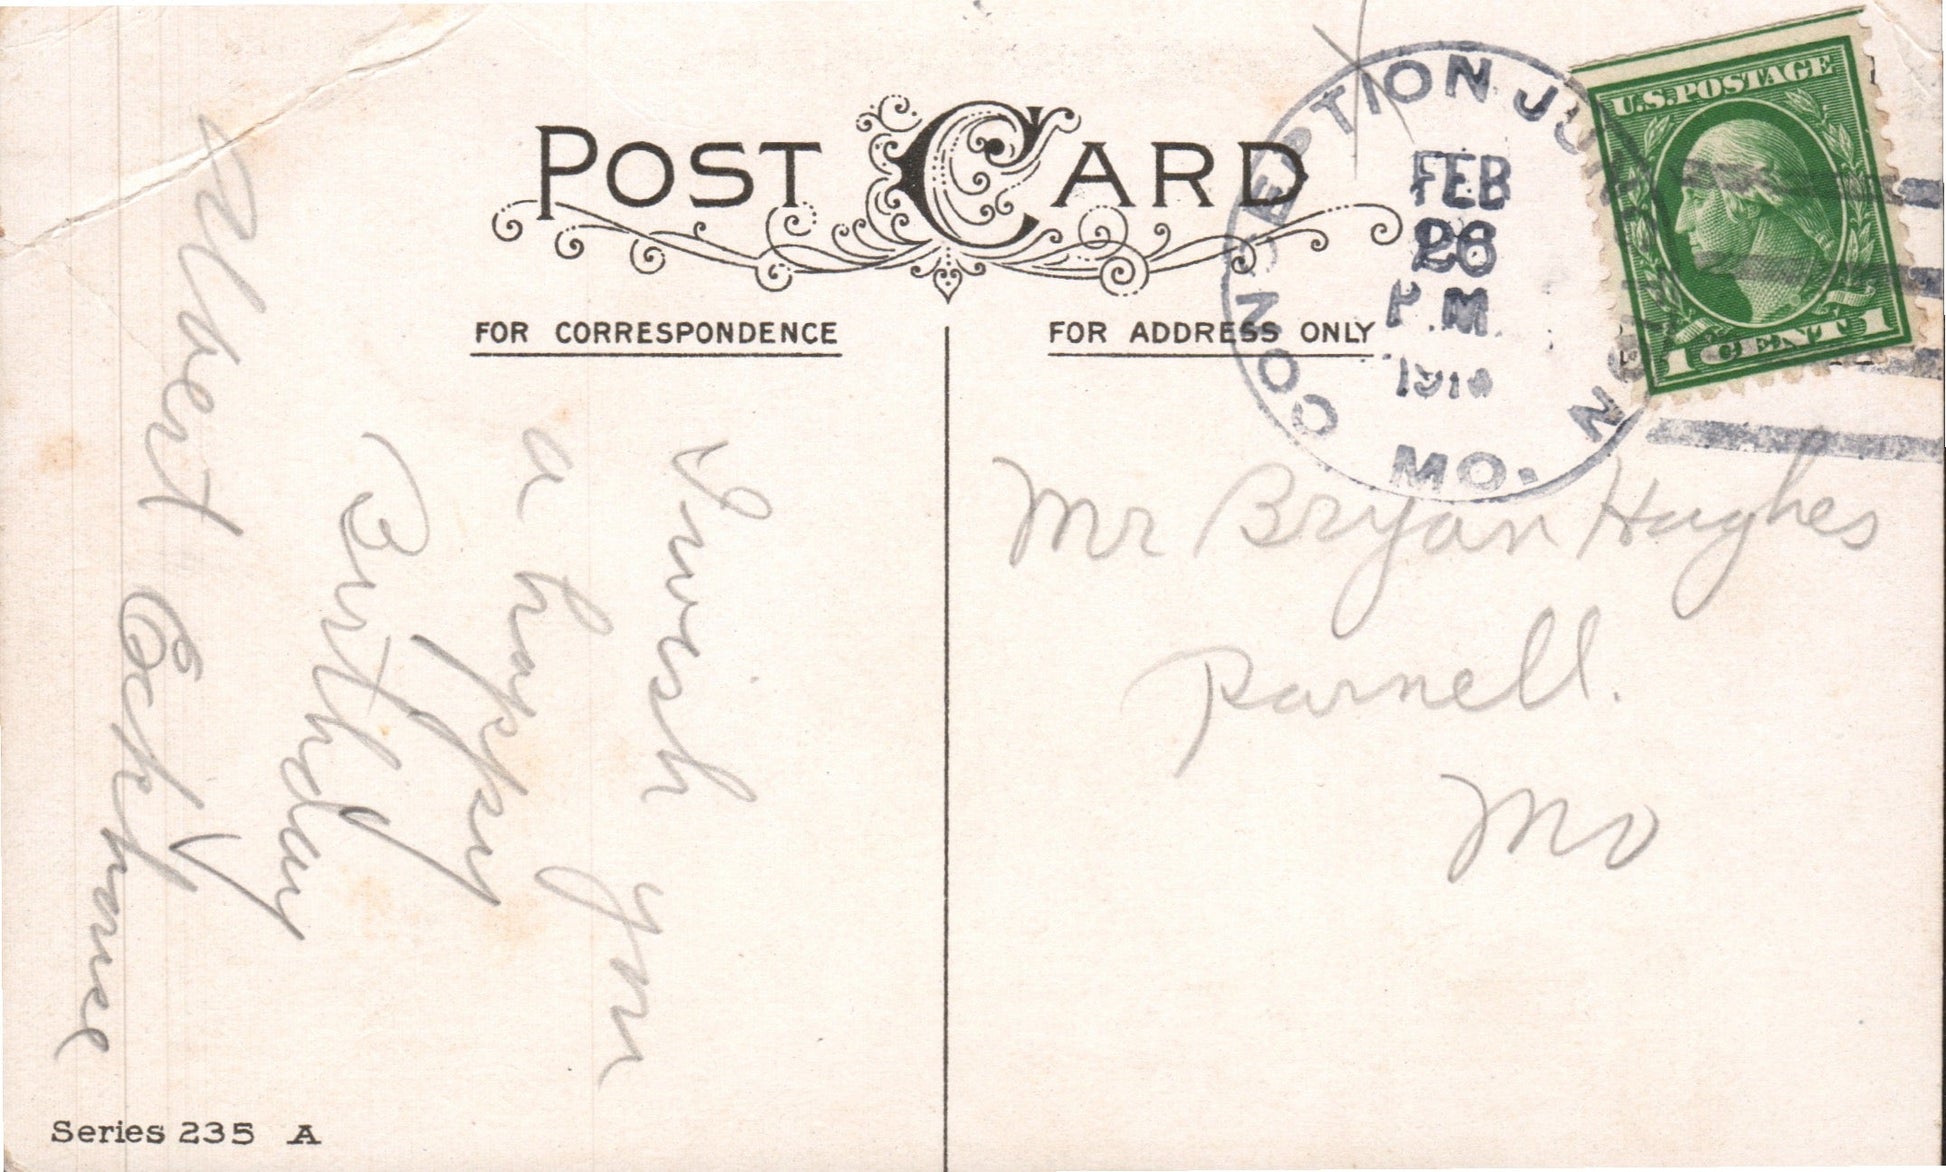 POST CARD
FOR CORRESPONDENCE
I wish you
a happy
Birthday
Albert
FOR ADDRESS ONLY
Mr Bryan Hughes
Parnell.
Mo
CONCEPTION JUNCTION
MO.
FEB
26
P.M.
U.S. POSTAGE
1 CENT 1
Series 235 A